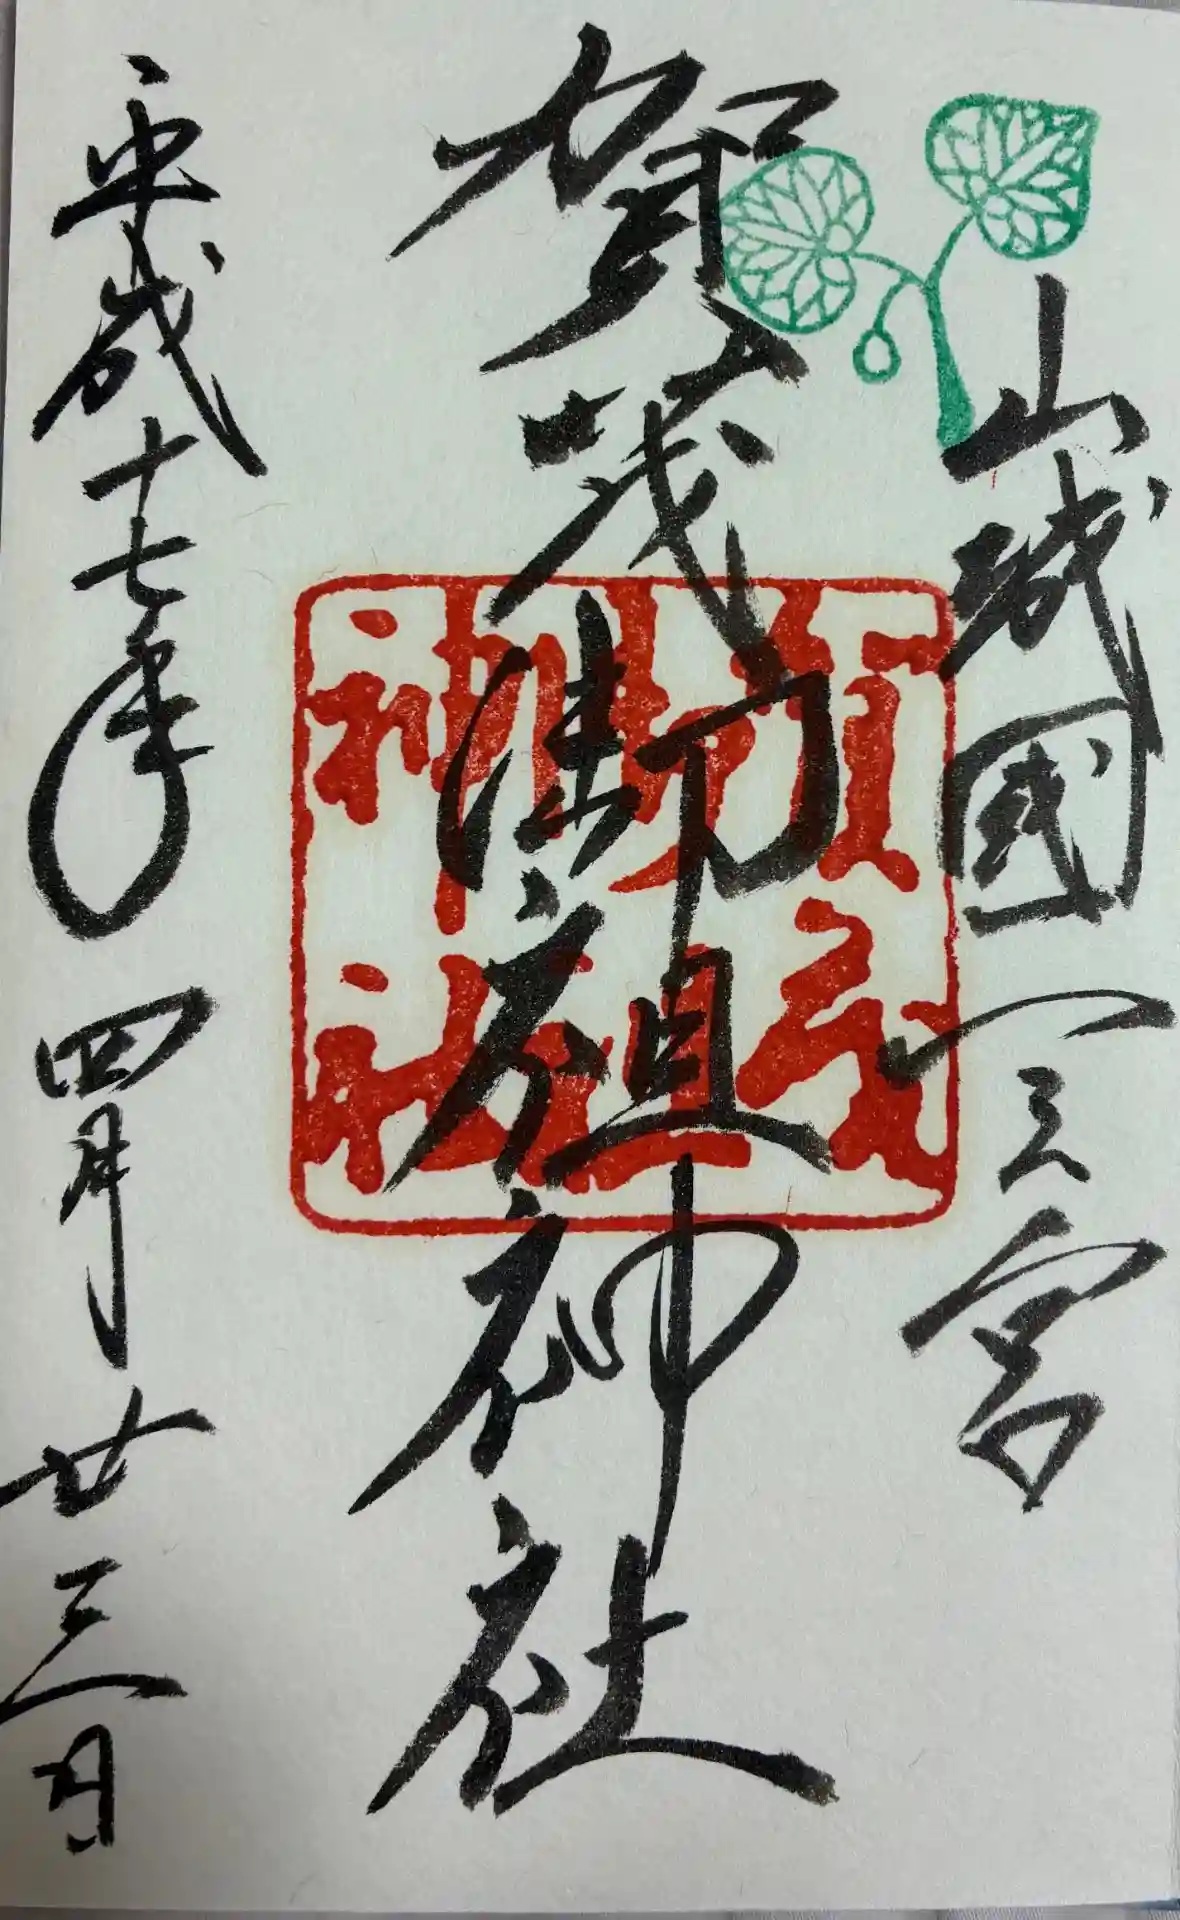 山城國一之宮
賀茂御祖神社
下鴨神社
平成十七年四月廿三日